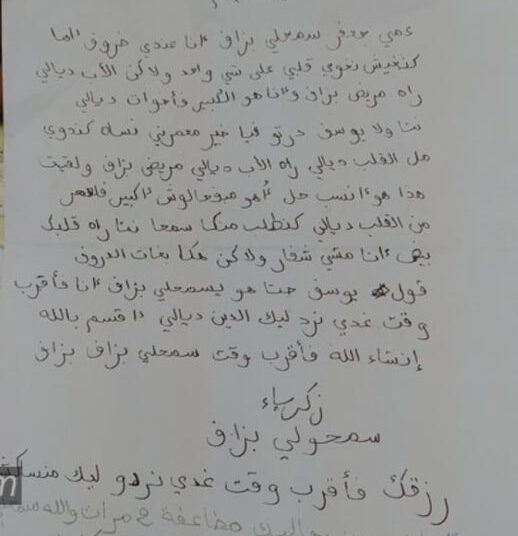 عمي جعفر سمحلي بزاف أنا عندي ضروف أصا
كنغيش نخوي قلبي على شي واحد ولا كن الأب ديالي
راه مريض بزاف وأنا هو الكبير فأخوات ديالي
نتا ولا يوسف درتو فيا خير معمرني نساه كندوي
من القلب ديالي راه الأب ديالي مريض بزاف ولقيت
هذا هو أنسب حل
من القلب ديالي كنطلب منكا سمحا نتا راه قلبك
بيض أنا مشي شفار ولا كن هكا بغات الضروف
قول يوسف حتا هو يسمحلي بزاف أنا فأقرب
وقت غدي نرد ليك الدين ديالي أقسم بالله
إنشاء الله فأقرب وقت سمحلي بزاف بزاف
زكرياء
سمحولي بزاف
رزقك فأقرب وقت غدي نردو ليك
مضاعفة مرات والله